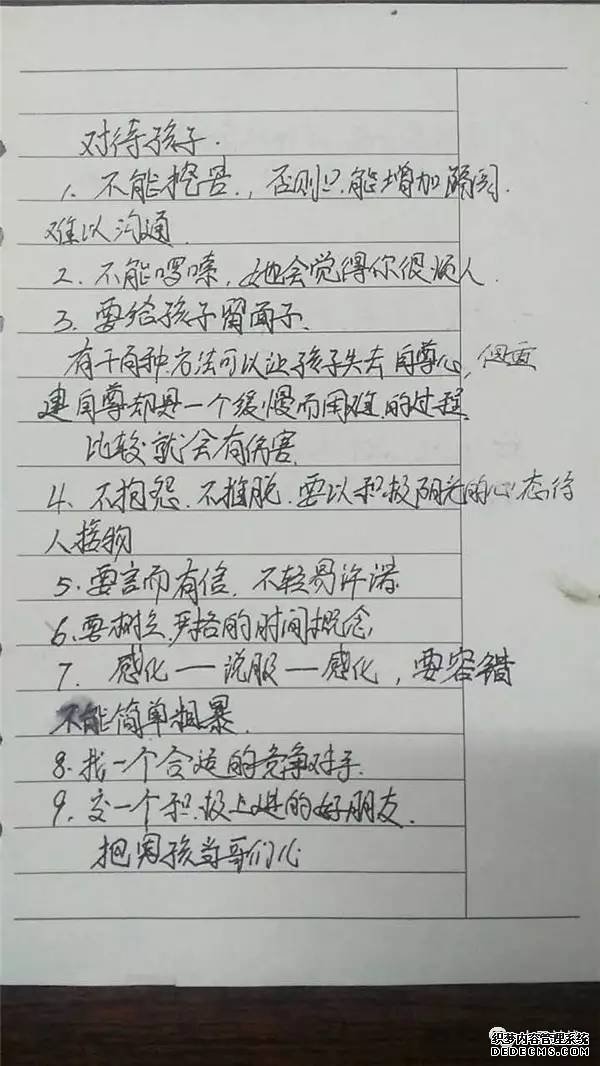 对待孩子.
1. 不能挖苦,否则只能增加隔阂.
难以沟通
2. 不能啰嗦,她会觉得你很烦人.
3. 要给孩子留面子.
有千百种方法可以让孩子失去自尊心,但重
建自尊却是一个缓慢而困难的过程
比较就会有伤害.
4. 不抱怨.不推脱.要以积极阳光的心态待
人接物
5. 要言而有信.不轻易许诺
6. 要树立严格的时间概念
7. 感化—说服—感化,要容错
不能简单粗暴.
8. 找一个合适的竞争对手.
9. 交一个积极上进的好朋友.
把男孩当哥们儿
织梦内容管理系统
DEDECMS.COM